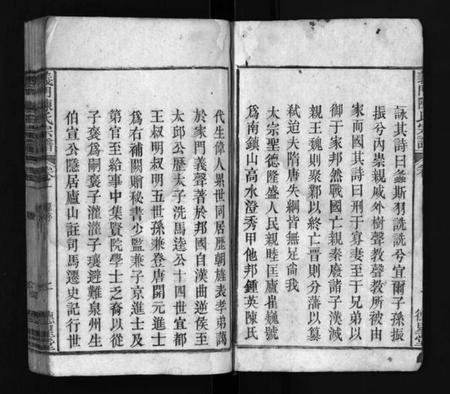 詠其詩曰螽斯羽詵詵兮宜爾子孫振
振兮內崇親戚外樹聲教聲教所被由
家而國其詩曰刑于寡妻至于兄弟以
御于家邦然戰國亡親秦廢諸子漢減
親王魏則聚鄴以終亡晉則分藩以篡
弒迨夫隋唐失綱皆無足命我
太宗聖德隆盛人民親睦匡廬巍號
爲南鎮山高水澄秀甲他邦鍾英陳氏
代生偉人累世同居歷朝旌表孝弟謁
於家門義聲著於邦國自漢曲逆侯至
太邱公歷太子洗馬逵公十四世宜都
王叔明叔明五世孫兼登唐開元進士
爲右補闕贈秘書少監兼子京進士及
第官至給事中集賢院學士之喬以從
子襃爲嗣襃子灌灌子瓌避難泉州生
伯宣公隱居廬山註司馬遷史記行世
義門陳氏宗譜
德星堂